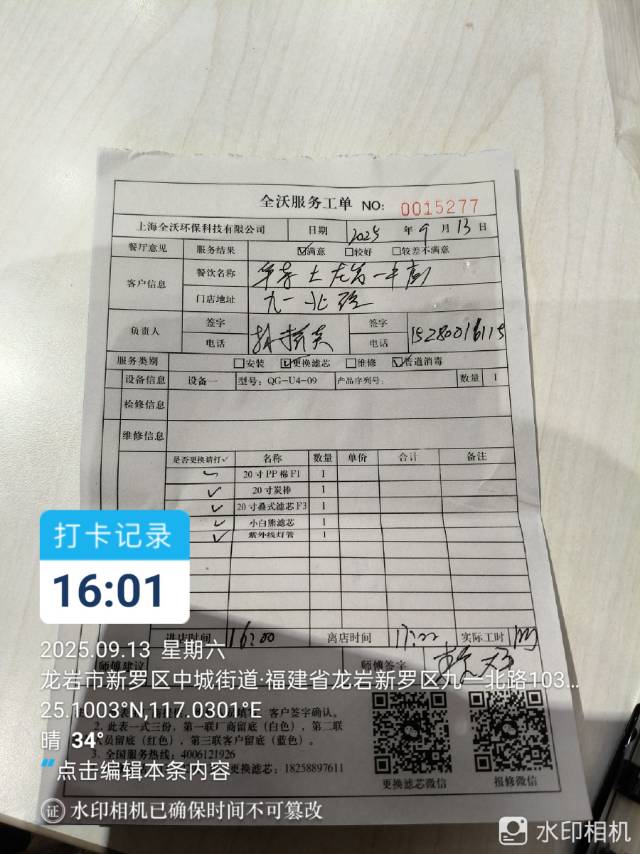 全沃服务工单 NO: 0015277
上海全沃环保科技有限公司 日期 2025 年 9 月 13 日
餐厅意见 服务结果 ☑满意 □较好 □较差不满意
客户信息 餐饮名称
门店地址 九一北路
负责人 签字 签字
电话 电话 15280016115
服务类别 □安装 ☑更换滤芯 □维修 ☑管道消毒
设备信息 设备一 型号: QG-U4-09 产品序列号: 数量 1
检修信息
维修信息
是否更换请打✓ 名称 数量 单价 合计 备注
✓ 20寸PP棉F1 1
✓ 20寸炭棒 1
✓ 20寸叠式滤芯F3 1
✓ 小白熊滤芯 1
✓ 紫外线灯管 1
进店时间 16:00 离店时间 17:00 实际工时
师傅建议 师傅签字
客户签字确认。
2. 此表一式三份，第一联厂商留底（白色），第二联
员留底（红色），第三联客户留底（蓝色）。
3. 全国服务热线: 4006121926
更换滤芯: 18258897611
更换滤芯微信 报修微信
打卡记录
16:01
2025.09.13 星期六
龙岩市新罗区中城街道·福建省龙岩新罗区九一北路103...
25.1003°N,117.0301°E
晴 34°
点击编辑本条内容
证 水印相机已确保时间不可篡改
水印相机